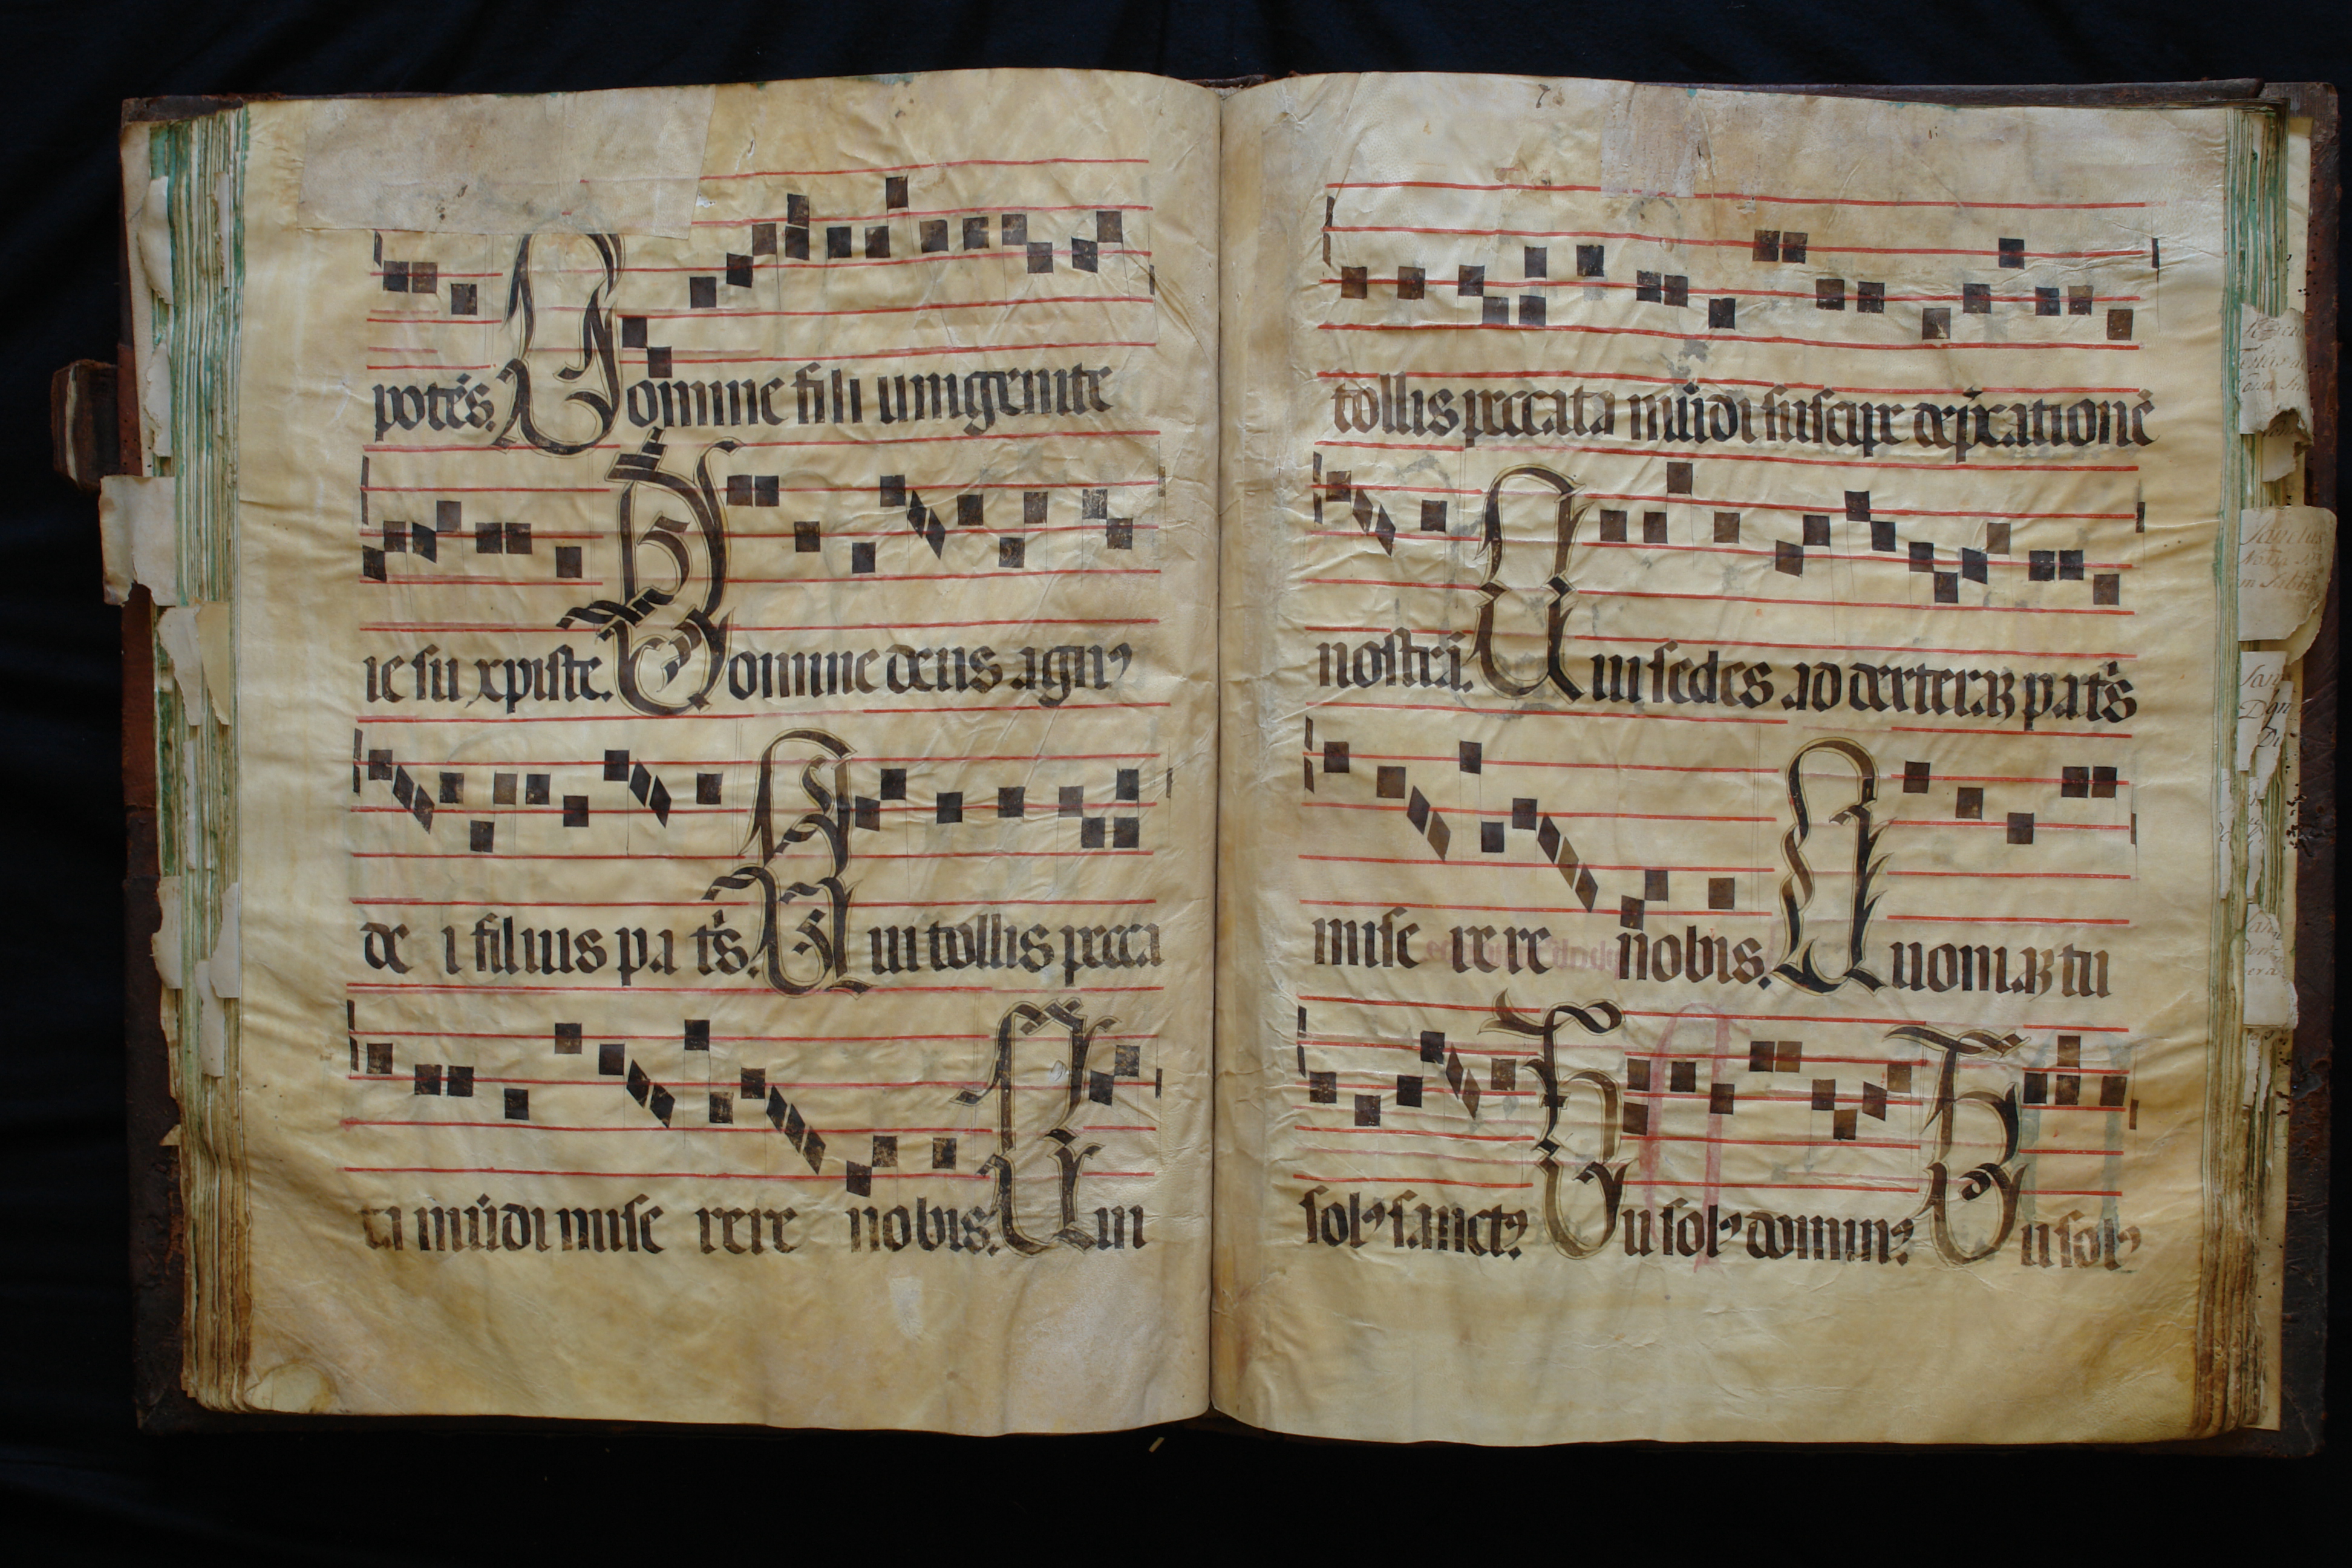 potēs. Domine fili unigenite
ie su xpiste. Domine deus agnꝰ
de i filius pa tᷣs. Qui tollis pecca
ta mūdi mise rere nobis. Qui
7
tollis peccata mūdi suscipe dep̄catione
nostrā. Qui sedes ad dexteraꝫ patᷣs
mise re re nobis. Quoniaꝫ tu
solꝰ sanctꝰ. Tu solꝰ dominꝰ. Tu solꝰ